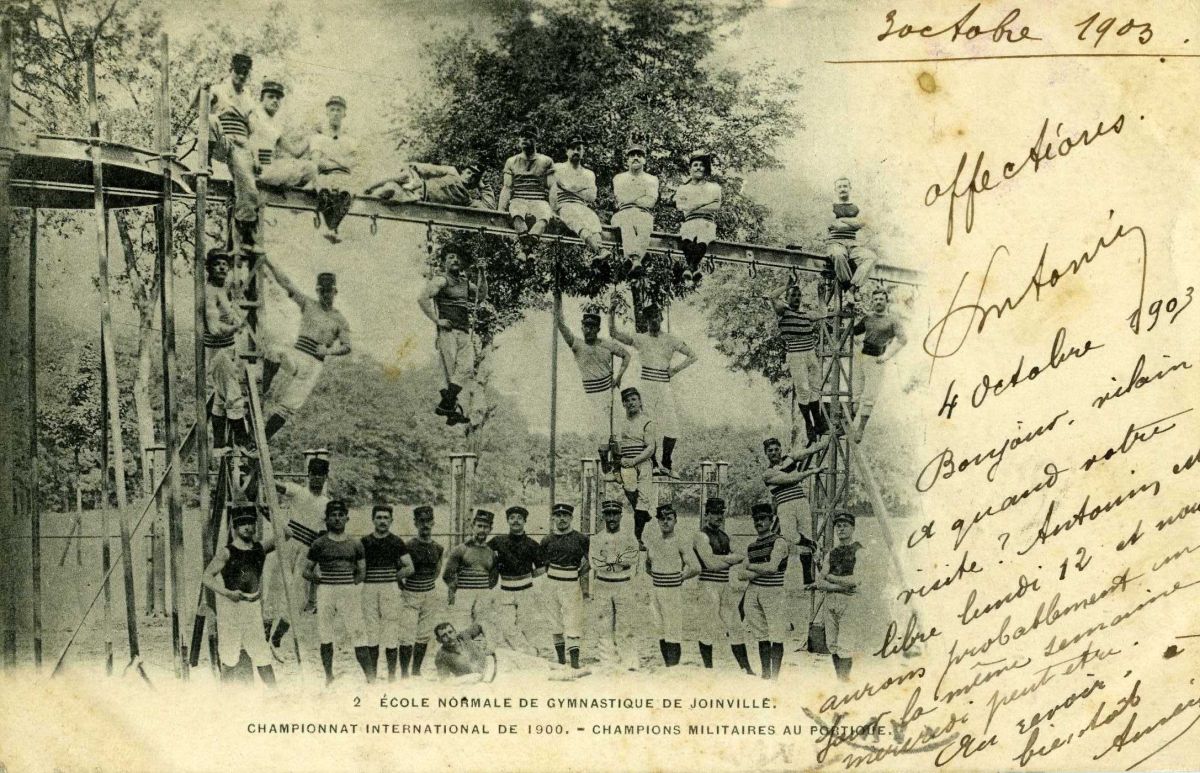 3 octobre 1903.
affections.
Antonin
4 Octobre 1903
Bonjour. vilain
à quand votre
visite? Antonin est
libre lundi 12 et nous
aurons probablement un
jour la même semaine
mercredi peut être.
Au revoir, à
bientôt
2 ÉCOLE NORMALE DE GYMNASTIQUE DE JOINVILLE.
CHAMPIONNAT INTERNATIONAL DE 1900. - CHAMPIONS MILITAIRES AU PORTIQUE.